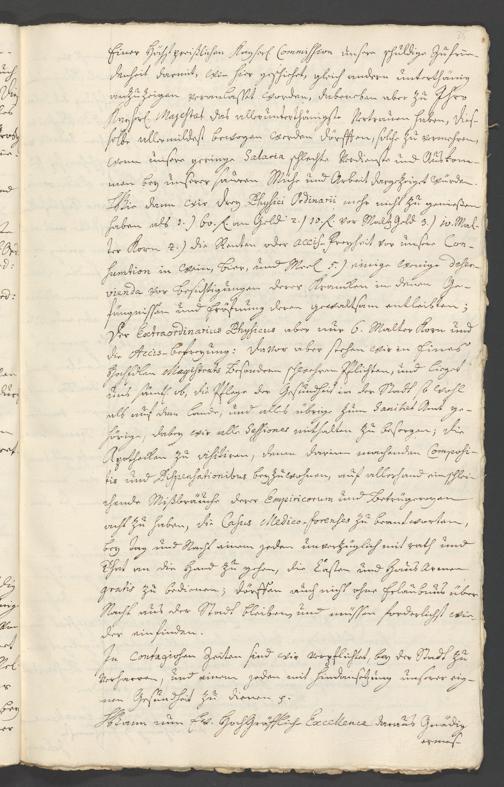 Einer Höchstpreißlichen Kayserl. Commission unsere schuldige Zufrie-
denheit darmit, wie hier geschiehet, gleich andern unterthänig
anzuzeigen veranlasset worden, dabeneben aber zu Ihro
Kayserl. Majestät das allerunterthänigste Vertrauen haben, die-
selbe allermildest bewogen werden dörfften, solche zu vermehren,
wenn unsere geringe Salaria, schlechte Verdienste und Auskom-
men bey unserer sauren Mühe und Arbeit dargezeigt würden.
Wie dann wir drey Physici Ordinarii mehr nicht zu geniesen
haben als 1.) 60. f. an Geld 2.) 10. f. vor 3.) 10. Mal-
ter Korn 4.) die Accis-Freyheit vor unsere Con-
sumtion in Wein, Bier, und Meel 5.) einige wenige deser-
vienda vor Besichtigungen derer Krancken in denen Ge-
fängnissen und Eröfnung deren gewaltsam entleibten;
Der Extraordinarius Physicus aber nur 6. Malter Korn und
die Accis-befreyung: Davor aber stehen wir in Eines
Hochedlen Magistrats besonderen schweren Pflichten, und lieget
uns sämtl. ob, die Pflege der Gesundheit in der Stadt so wohl
als auf dem Lande, und alles übrige zum Sanitäts Amt ge-
hörige, dabey wir alle Sessiones mithalten zu besorgen, die
Apothecken zu visitiren, denen darinn machenden Compositio-
nis und Dispensationibus beyzuwohnen, auf allerhand einschlei-
chende Mißbräuche derer Empiricorum und Betrügereyen
acht zu haben, die Casus Medico-forenses zu beantworten,
bey Tag und Nacht einem jeden unverzüglich mit rath und
That an die Hand zu gehen, die Casten und Haus Armen
gratis zu bedienen; dörffen auch nicht ohne Erlaubnis über
Nacht aus der Stadt bleiben, und müssen forderlichst wie-
der einfinden.
In Contagiosen Zeiten sind wir verpflichtet, bey der Stadt zu
verharren, und einem jeden mit Hindansetzung unserer eig-
nen Gesundheit zu dienen p.
Wann nun Ew. Hochgräffliche Excellence daraus Gnädig
ermes-